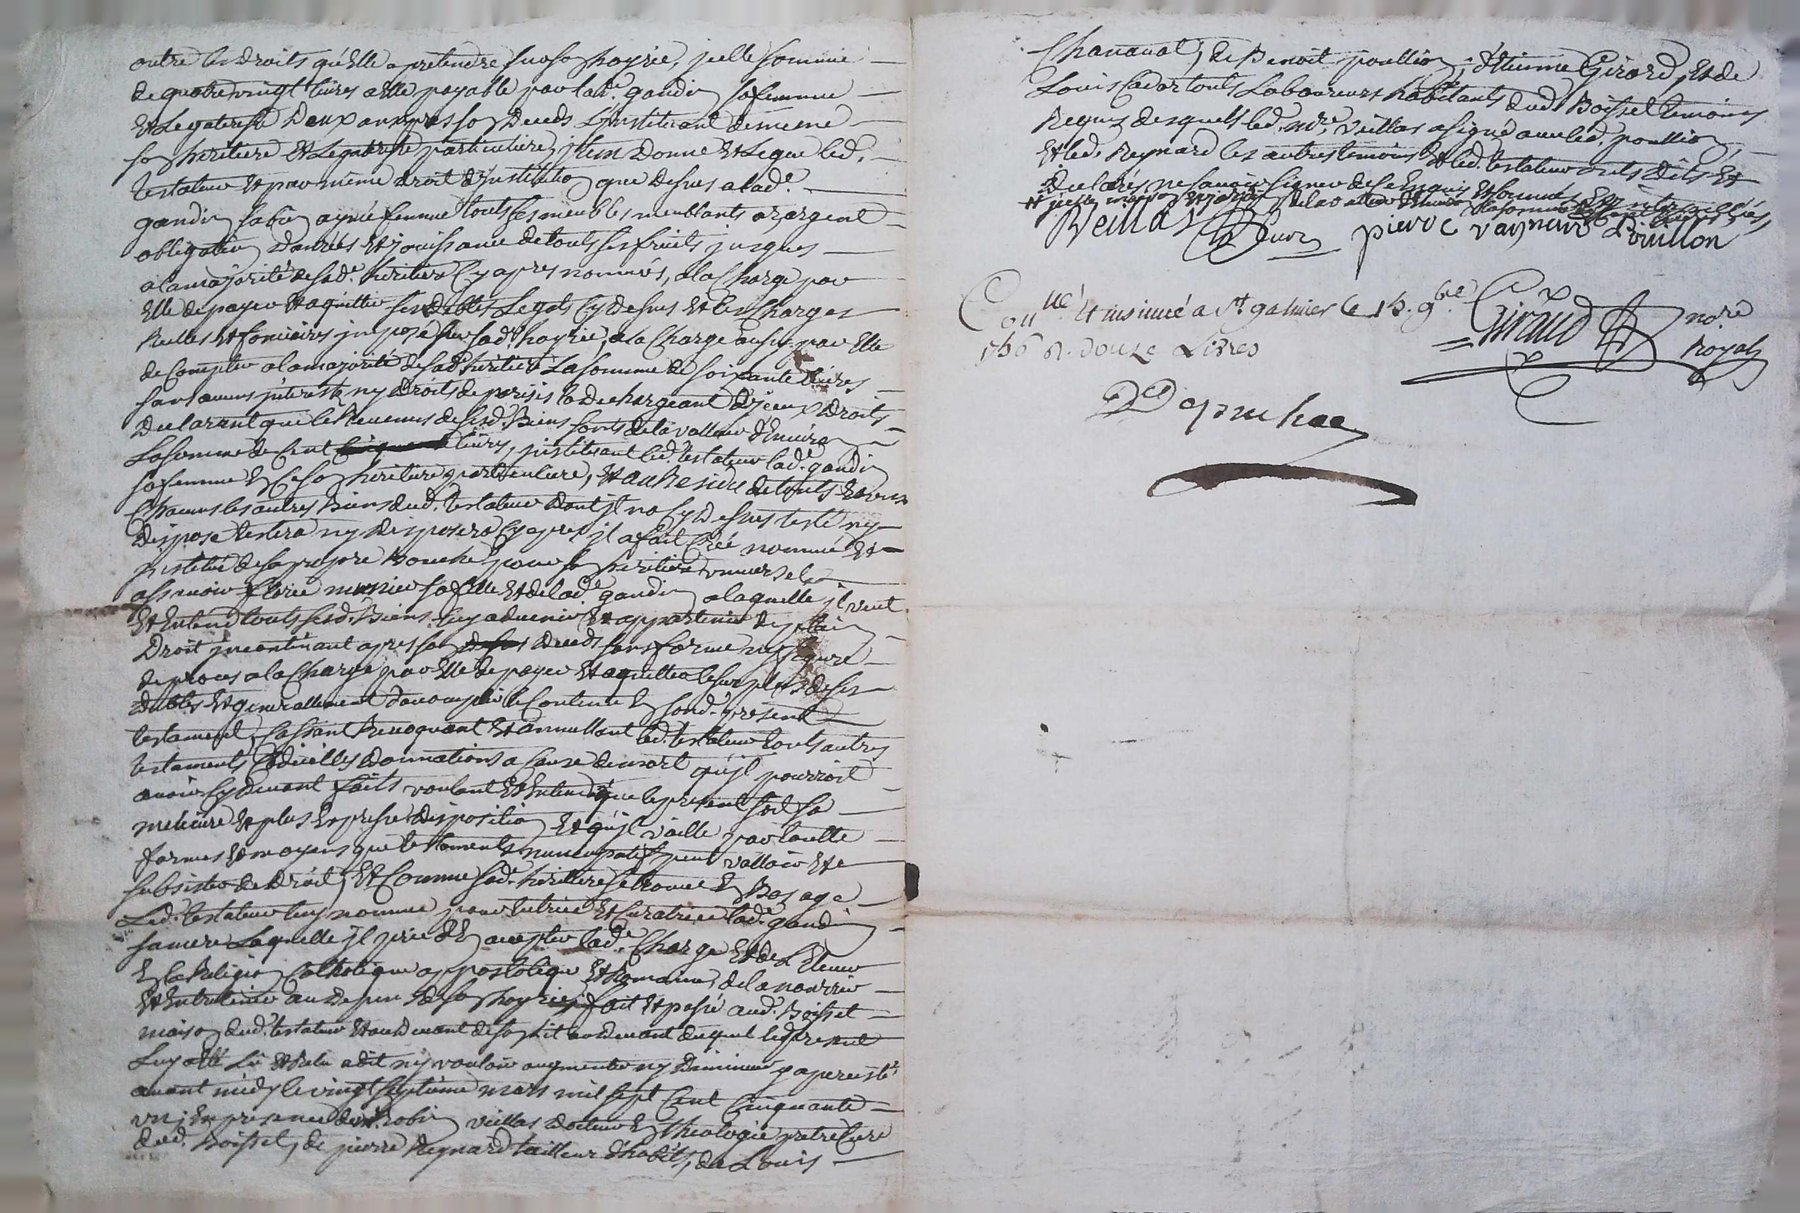 outre les droits qu'Elle a pretendre sur so hoyrie, jcelle somme
de quatre vingt livres a elle payable par lad.e gandin sa femme
Et Legateresse Deux ans apres so Deceds L'instituant de meme
so heritiere Et Legatresse particuliere, jtem Donne Et Legue led.
testateur Et par meme droit d'Institution que Dessus a lad.e
gandin sa bien aymée femme touts ses meubles meublants or argent
obligation Danrées Et jouissance de touts ses fruits jusques
a la majorité de sad.e heritiere Cy apres nommée, a la Charge par
Elle de payer Et aquitter ses debtes Legats Cy dessus Et les Charges
Reelles Et foncieres jmposé sur lad. hoyrie, a la Charge aussy par Elle
de Compter a la majorité de sad.e heritiere La somme de soixante livres
sans aucuns jnterests ny Droits de la dechargeant d'jceux Droits
Declarant que les Revenus de sesd. Biens sont de la valleur d'Environ
La somme de Cent livres, jnstituant led. testateur lad.e gandin
sa femme En Ce so heritiere particuliere, Et au residu de touts Et uns
Chacuns les autres Biens dud. testateur Dont jl na Cy Dessus testé ny
Disposé testera ny Disposera Cy apres jl a fait Créé nommé Et
jnstitué de sa propre Bouche pour so heritiere universelle
assavoir fleurie sa fille Et de lad.e gandin a laquelle jl veut
Et Entend touts sesd. Biens luy advenir Et appartenir de plain
Droit jncontinant apres so deceds sans forme ny figure
de proces a la Charge par Elle de payer Et aquitter le surplus de ses
debtes Et generallement d'accomplir le Contenu En sond. present
testament, Cassant Revoquant Et annullant led. testateur touts autres
testaments Codicilles Donnations a Cause de mort qu'jl pourroit
avoir Cy devant faits voulant Et Entend que le present soit sa
melieure Et plus Expresse disposition Et qu'jl vaille par toutte
formes Et moyens que testament nuncupatif peut valloir Et
subsister de Droit, Et Comme sad.e heritiere se trouve En Bas age
Led. testateur luy nomme pour tutrice Et Curatrice lad.e gandin
sa mere Laquelle jl prie d'En accepter lad.e Charge Et de L'Elever
En la Religion Catholique appostolique Et Romaine de la nourrir
Et Entretenir au depens de so hoyrie, fait Et passé aud. Boisset
maison dud. testateur Et au devant de so lit au devant duquel led. present
Luy a Eté Lu Et Relu a dit n'y vouloir augmenter ny Diminuer
avant midy le vingt septieme mars mil sept Cent Cinquante
un; En presence de Robin Veillas docteur En theologie pretre Curé
dud. Boisset, de pierre Reynard tailleur d'habits, de Louis
Chananal, de Benoit poullion, d'Etienne Girard, Et de
Louis Cador touts Laboureurs habitants dud. Boisset temoins
Requis desquels led. Veillas a signé avec led. poullion
Et led. Reynard les autres temoins Et led. testateur ont Dits Et
Declarés ne savoir signer de ce Enquis Et sommés
Veillas Curé pierre raynard Poullon
Con.llé Et insinué a St galmier le 15. 9bre
douze Livres
Giraud no.re
Royal